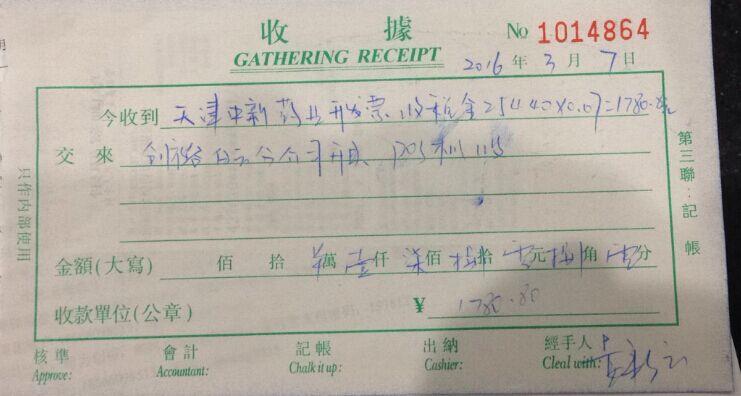 收 據 No 1014864
GATHERING RECEIPT
2016 年 3 月 7 日
今收到 天津中新药业开发票收税金25440X0.07=1780.80
交 來 分公司开具
金額(大寫) 佰 拾 萬 壹仟 柒佰 捌拾 零元 捌角 零分
收款單位(公章) ¥ 1780.80
核準 會計 記帳 出納 經手人
Approve: Accountant: Chalk it up: Cashier: Cleal with:
第三聯:記帳
只作内部使用